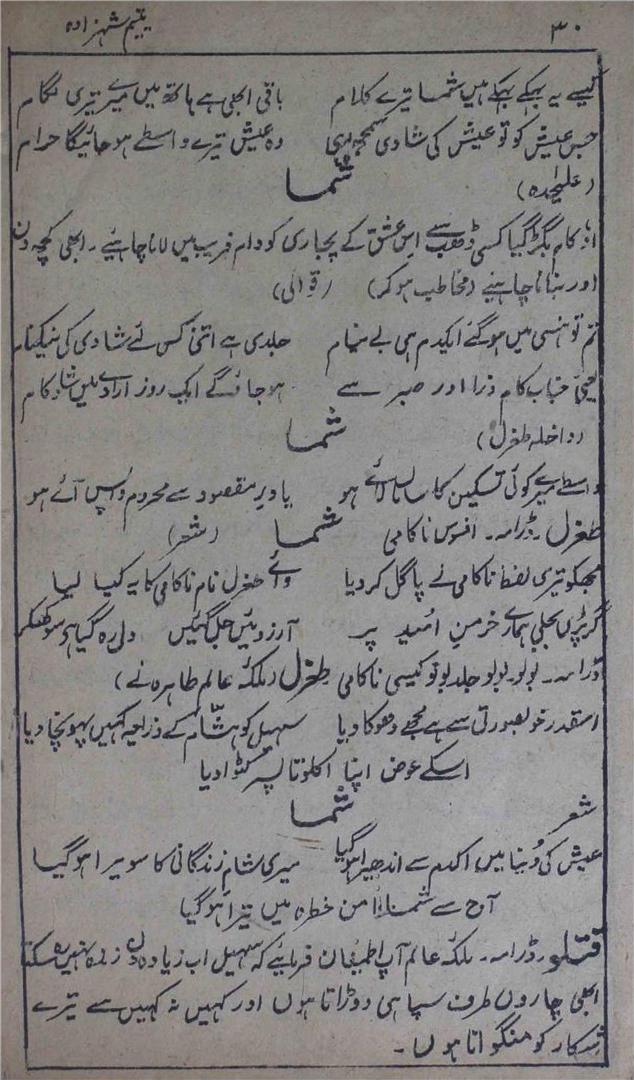 ۳۰ یتیم شہزادہ
کیسے یہ بہکے بہکے ہیں شما تیرے کلام باقی ابھی ہے ہاتھ میں میرے تیری لگام
جس عیش کو تو عیش کی شادی سمجھ رہی وہ عیش تیرے واسطے ہو جائیگا حرام
(علیحدہ) شما
کام بگڑ گیا کسی ڈھب سے اس عشق کے پجاری کو دام فریب میں لانا چاہئیے ۔ ابھی کچھ دن
اور بنانا چاہئیے (مخاطب ہو کر)
تم تو ہنسی میں ہو گئے ایکدم ہی بے نیام جلدی ہے اتنی کس لئے شادی کی نیکنام
جناب کام ذرا اور صبر سے ہو جاؤ گے ایک روز ارادے میں شاد کام
(داخلہ طغرل) شما
واسطے میرے کوئی تسکین کا سامان لائے ہو یا دیر مقصود سے محروم واپس آئے ہو
طغرل ۔ ڈرامہ ۔ افسوس ناکامی شما (شعر)
مجھکو تیری لفظ ناکامی نے پاگل کر دیا وائے طغرل نام ناکامی کا یہ کیا لیا
گر پڑیں بجلی ہمارے خرمنِ امید پر آرزوئیں جل گئیں دل رہ گیا ہے سوکھکر
ڈرامہ ۔ بولو بولو جلد بولو کیسی ناکامی طغرل (ملکۂ عالم طاہرہ نے)
اسقدر خوبصورتی سے ہے مجھے دھوکا دیا سہیل کو ہشام کے ذریعہ کہیں پہونچا دیا
اسکے عوض اپنا اکلوتا پسر کٹوا دیا
شعر شما
عیش کی دنیا میں اکدم سے اندھیرا ہو گیا میری شام زندگانی کا سویرا ہو گیا
آج سے شما امن خطرہ میں تیرا ہو گیا
قتلو ۔ ڈرامہ ۔ ملکۂ عالم آپ اطمینان فرمایئے کہ سہیل اب زیادہ دن زندہ نہیں رہ سکتا
ابھی چاروں طرف سپاہی دوڑاتا ہوں اور کہیں نہ کہیں سے تیرے
شکار کو منگواتا ہوں ۔